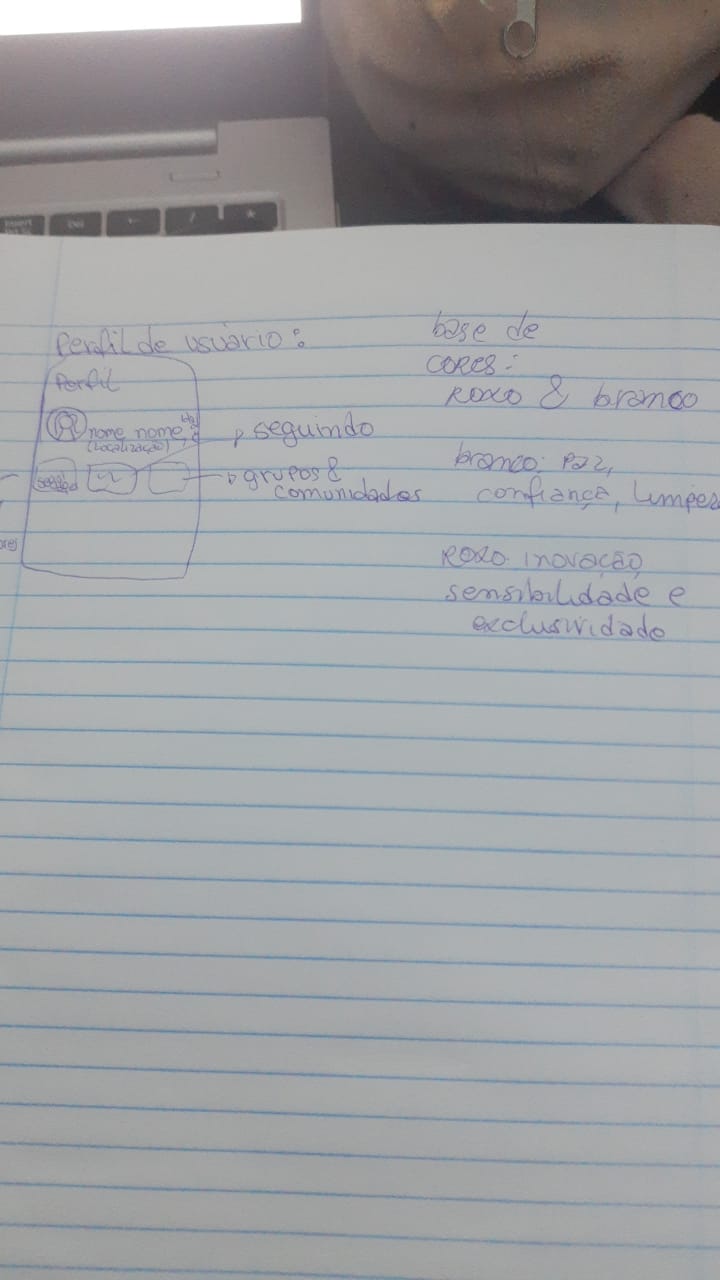 Perfil de usuário:
Perfil
nome nome
(Localização)
seguindo
grupos &
comunidades
ores
base de
cores:
Roxo & branco
branco: paz,
confiança, limpez
Roxo: inovação,
sensibilidade e
exclusividade